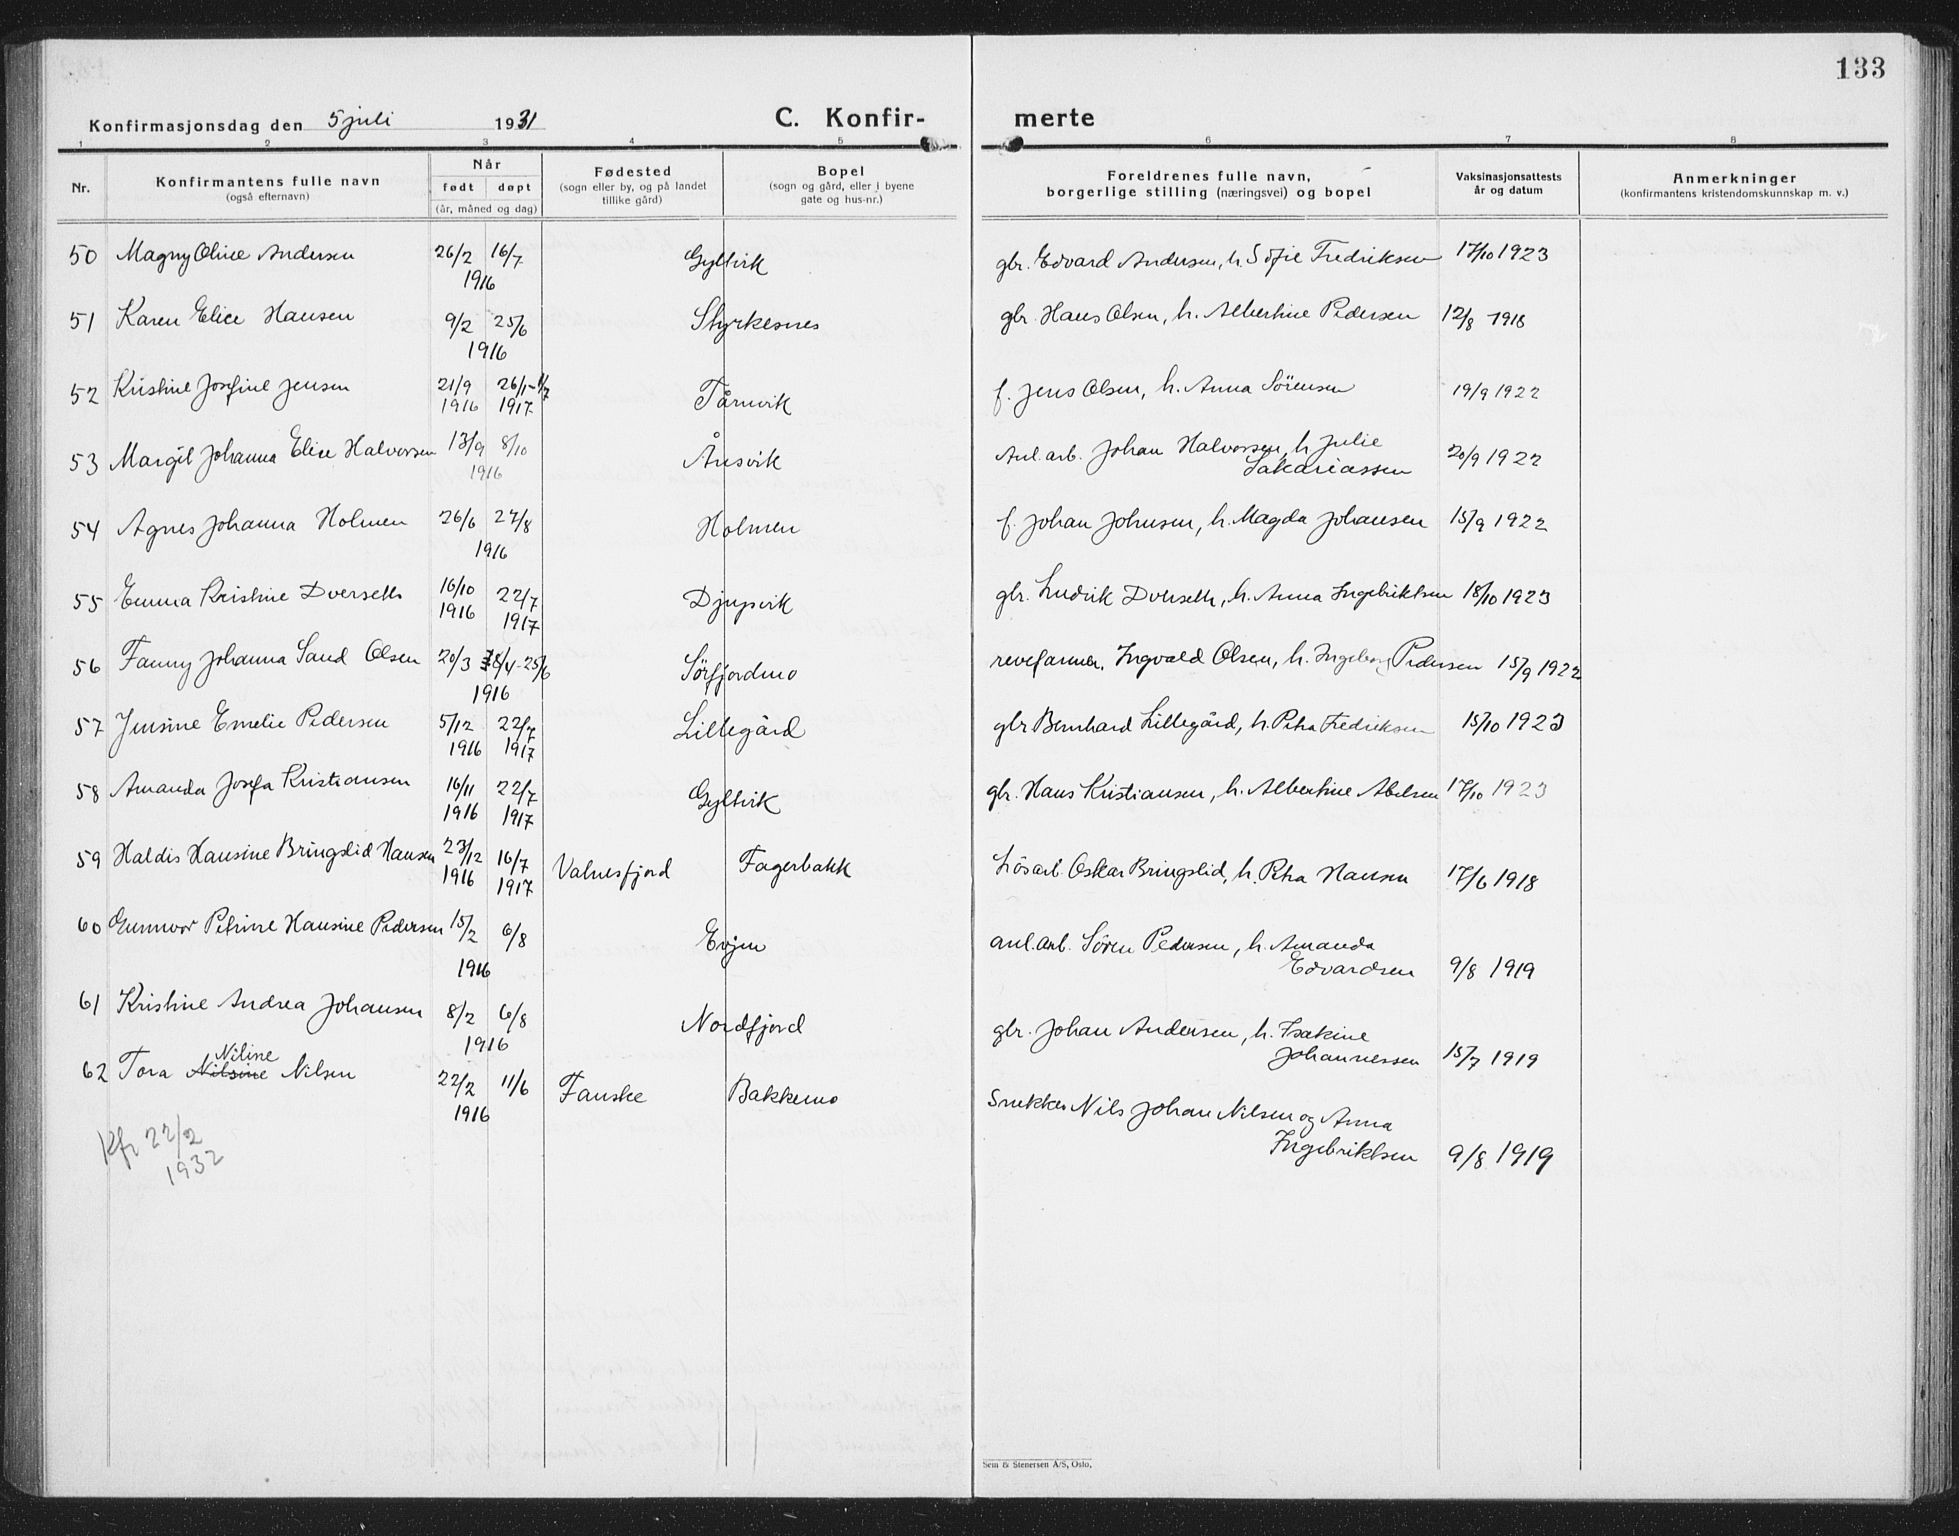 133
Konfirmasjonsdag den 5 juli 1931 C. Konfir- merte
1 2 3 4 5 6 7 8
Nr. Konfirmantens fulle navn (også efternavn) Når født døpt (år, måned og dag) Fødested (sogn eller by, og på landet tillike gård) Bopel (sogn og gård, eller i byene gate og hus-nr.) Foreldrenes fulle navn, borgerlige stilling (næringsvei) og bopel Vaksinasjonsattests år og datum Anmerkninger (konfirmantens kristendomskunnskap m. v.)
50 Magny Oline Andersen 26/2 16/7 1916 Gyltvik gbr. Edvard Andersen, h. Sofie Fredriksen 17/10 1923
51 Karen Elice Hansen 9/2 25/6 1916 Styrkesnes gbr. Hans Olsen, h. Albertine Pedersen 12/8 1918
52 Kristine Josefine Jensen 21/9 1916 26/1-1/7 1917 Tårnvik f. Jens Olsen, h. Anna Sörensen 19/9 1922
53 Margit Johanna Elise Halvorsen 13/9 8/10 1916 Ånsvik Anl. arb. Johan Halvorsen, h. Julie
Sakariassen 20/9 1922
54 Agnes Johanna Holmen 26/6 27/8 1916 Holmen f. Johan Johnsen, h. Magda Johansen 15/9 1922
55 Emma Kristine Dverseth 16/10 1916 22/7 1917 Djupvik gbr. Ludvik Dverseth, h. Anna Ingebriktsen 18/10 1923
56 Fanny Johanna Sand Olsen 20/3 /4-25/6 1916 Sörfjordmo revefarmer. Ingvald Olsen, h. Ingeborg Pedersen 15/9 1922
57 Jensine Emelie Pedersen 5/12 1916 22/7 1917 Lillegård gbr Bernhard Lillegård, h. Petra Fredriksen 15/10 1923
58 Amanda Josefa Kristiansen 16/11 1916 22/7 1917 Gyltvik gbr. Hans Kristiansen, h. Albertine Abelsen 17/10 1923
59 Haldis Hansine Bringslid Hansen 23/12 1916 16/7 1917 Valnesfjord Fagerbakk Lösarb. Oskar Bringslid, h. Petra Hansen 17/6 1918
60 Gunnvor Petrine Hansine Pedersen 15/2 6/8 1916 Evjen anl. arb. Sören Pedersen, h. Amanda
Edvardsen 9/8 1919
61 Kristine Andrea Johansen 8/2 6/8 1916 Nordfjord gbr. Johan Andersen, h. Isakine
Johannessen 15/7 1919
Niline
62 Tora Nilsine Nilsen 22/2 11/6 1916 Fauske Bakkemo Snekker Nils Johan Nilsen og Anna
Ingebriktsen 9/8 1919
Kfr 22/2
1932
Sem & Stenersen A/S, Oslo.